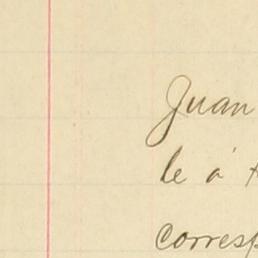 Juan
le á
corresp